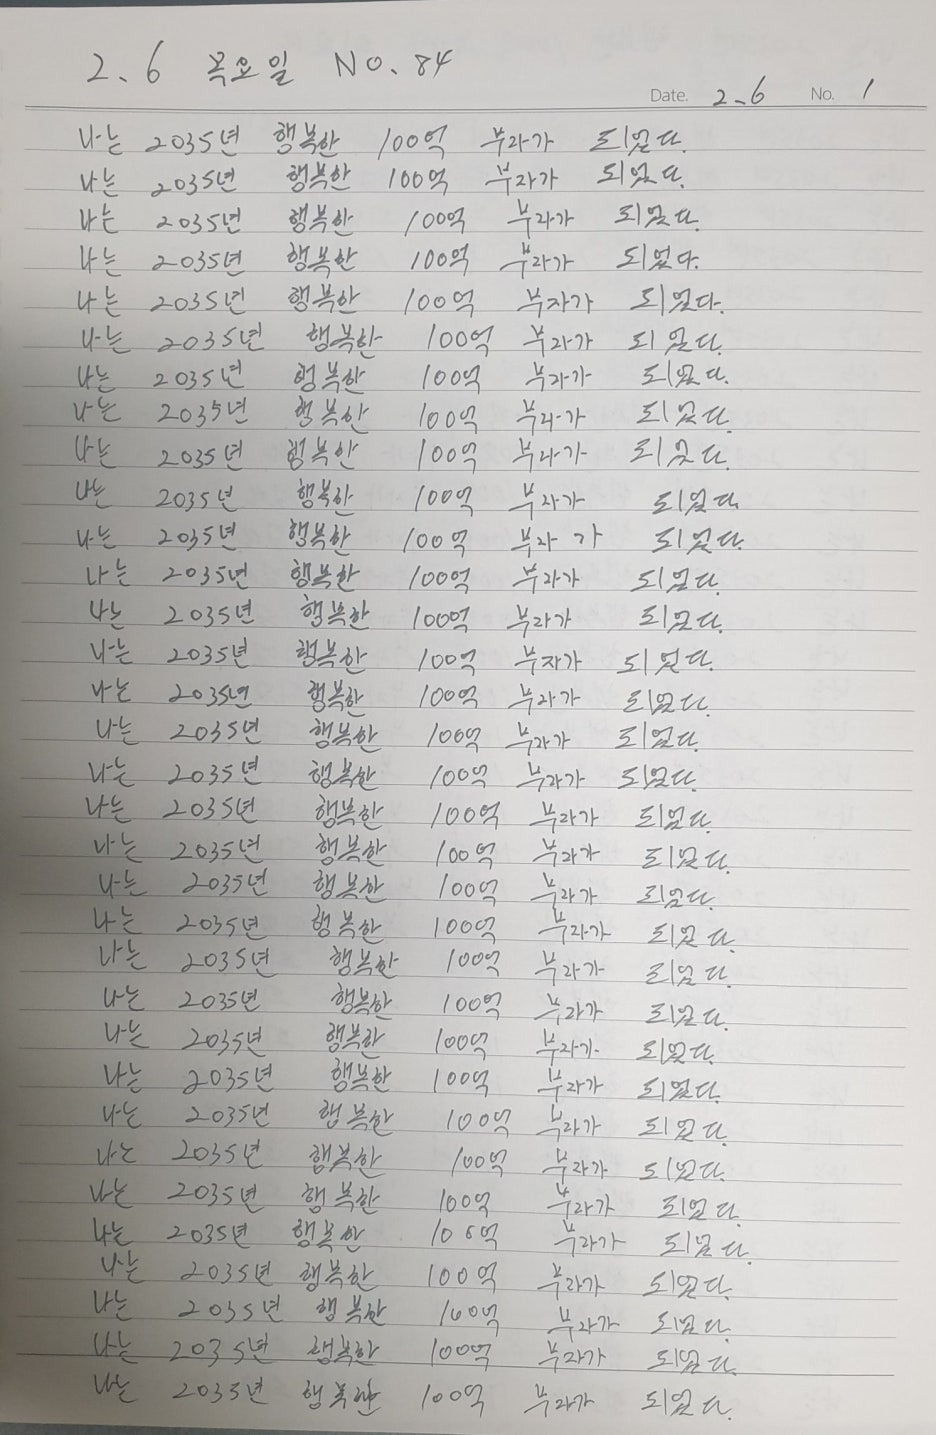 2.6 목요일 NO.84
Date. 2-6 No. 1
나는 2035년 행복한 100억 부자가 되었다.
나는 2035년 행복한 100억 부자가 되었다.
나는 2035년 행복한 100억 부자가 되었다.
나는 2035년 행복한 100억 부자가 되었다.
나는 2035년 행복한 100억 부자가 되었다.
나는 2035년 행복한 100억 부자가 되었다.
나는 2035년 행복한 100억 부자가 되었다.
나는 2035년 행복한 100억 부자가 되었다.
나는 2035년 행복한 100억 부자가 되었다.
나는 2035년 행복한 100억 부자가 되었다.
나는 2035년 행복한 100억 부자가 되었다.
나는 2035년 행복한 100억 부자가 되었다.
나는 2035년 행복한 100억 부자가 되었다.
나는 2035년 행복한 100억 부자가 되었다.
나는 2035년 행복한 100억 부자가 되었다.
나는 2035년 행복한 100억 부자가 되었다.
나는 2035년 행복한 100억 부자가 되었다.
나는 2035년 행복한 100억 부자가 되었다.
나는 2035년 행복한 100억 부자가 되었다.
나는 2035년 행복한 100억 부자가 되었다.
나는 2035년 행복한 100억 부자가 되었다.
나는 2035년 행복한 100억 부자가 되었다.
나는 2035년 행복한 100억 부자가 되었다.
나는 2035년 행복한 100억 부자가 되었다.
나는 2035년 행복한 100억 부자가 되었다.
나는 2035년 행복한 100억 부자가 되었다.
나는 2035년 행복한 100억 부자가 되었다.
나는 2035년 행복한 100억 부자가 되었다.
나는 2035년 행복한 100억 부자가 되었다.
나는 2035년 행복한 100억 부자가 되었다.
나는 2035년 행복한 100억 부자가 되었다.
나는 2035년 행복한 100억 부자가 되었다.
나는 2035년 행복한 100억 부자가 되었다.